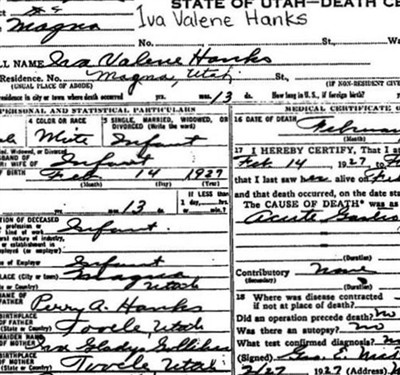 STATE OF UTAH—DEATH CE
Iva Valene Hanks
Magna
No. St,
LL NAME Iva Valene Hanks
Residence. No. Magna, Utah St,
(USUAL PLACE OF ABODE) (IF NON-RESIDENT GIVE
residence in city or town where death occurred yrs. mos. 13 ds. How long in U. S., if foreign birth? yrs.
PERSONAL AND STATISTICAL PARTICULARS MEDICAL CERTIFICATE O
4 COLOR OR RACE 5 SINGLE, MARRIED, WIDOWED, OR DIVORCED (Write the word) 16 DATE OF DEATH
Infant (Month)
17 I HEREBY CERTIFY, That I at
Infant Feb 14 1927
OF BIRTH Feb 14 1927 that I last saw her alive on
(Month) (Day) (Year) and that death occurred, on the date sta
yrs. mos. 13 ds. If LESS than 1 day, hrs. The CAUSE OF DEATH* was as
OCCUPATION OF DECEASED
Infant
(Duration)
of Employer Infant Contributory None
PLACE (City or town) Magna (Duration)
Utah 18 Where was disease contracted
NAME OF FATHER Perry A. Hanks if not at place of death?
BIRTHPLACE OF FATHER (State or Country) Tooele, Utah Did an operation precede death? no
Was there an autopsy? no
MAIDEN NAME OF MOTHER Iva Gladys What test confirmed diagnosis?
BIRTHPLACE OF MOTHER (State or Country) Tooele Utah (Signed) Geo. E.
2/27 1927 (Address)